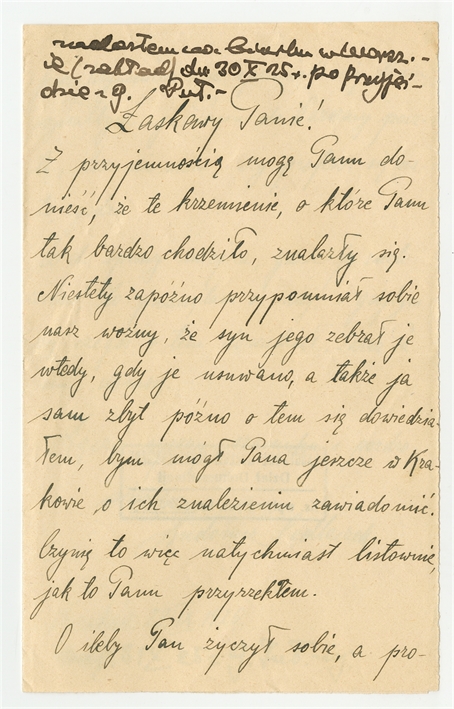 nadesłano w Warsz.-
ie (zakład) dn 30 X 25 r. po przyjeź-
dzie z g. Puł.-
Łaskawy Panie!
Z przyjemnością mogę Panu do-
nieść, że te krzemienie, o które Panu
tak bardzo chodziło, znalazły się.
Niestety zapóźno przypomniał sobie
nasz woźny, że syn jego zebrał je
wtedy, gdy je usuwano, a także ja
sam zbyt późno o tem się dowiedzia-
łem, bym mógł Pana jeszcze w Kra-
kowie o ich znalezieniu zawiadomić.
Czynię to więc natychmiast listownie,
jak to Panu przyrzekłem.
O ileby Pan życzył sobie, a pro-